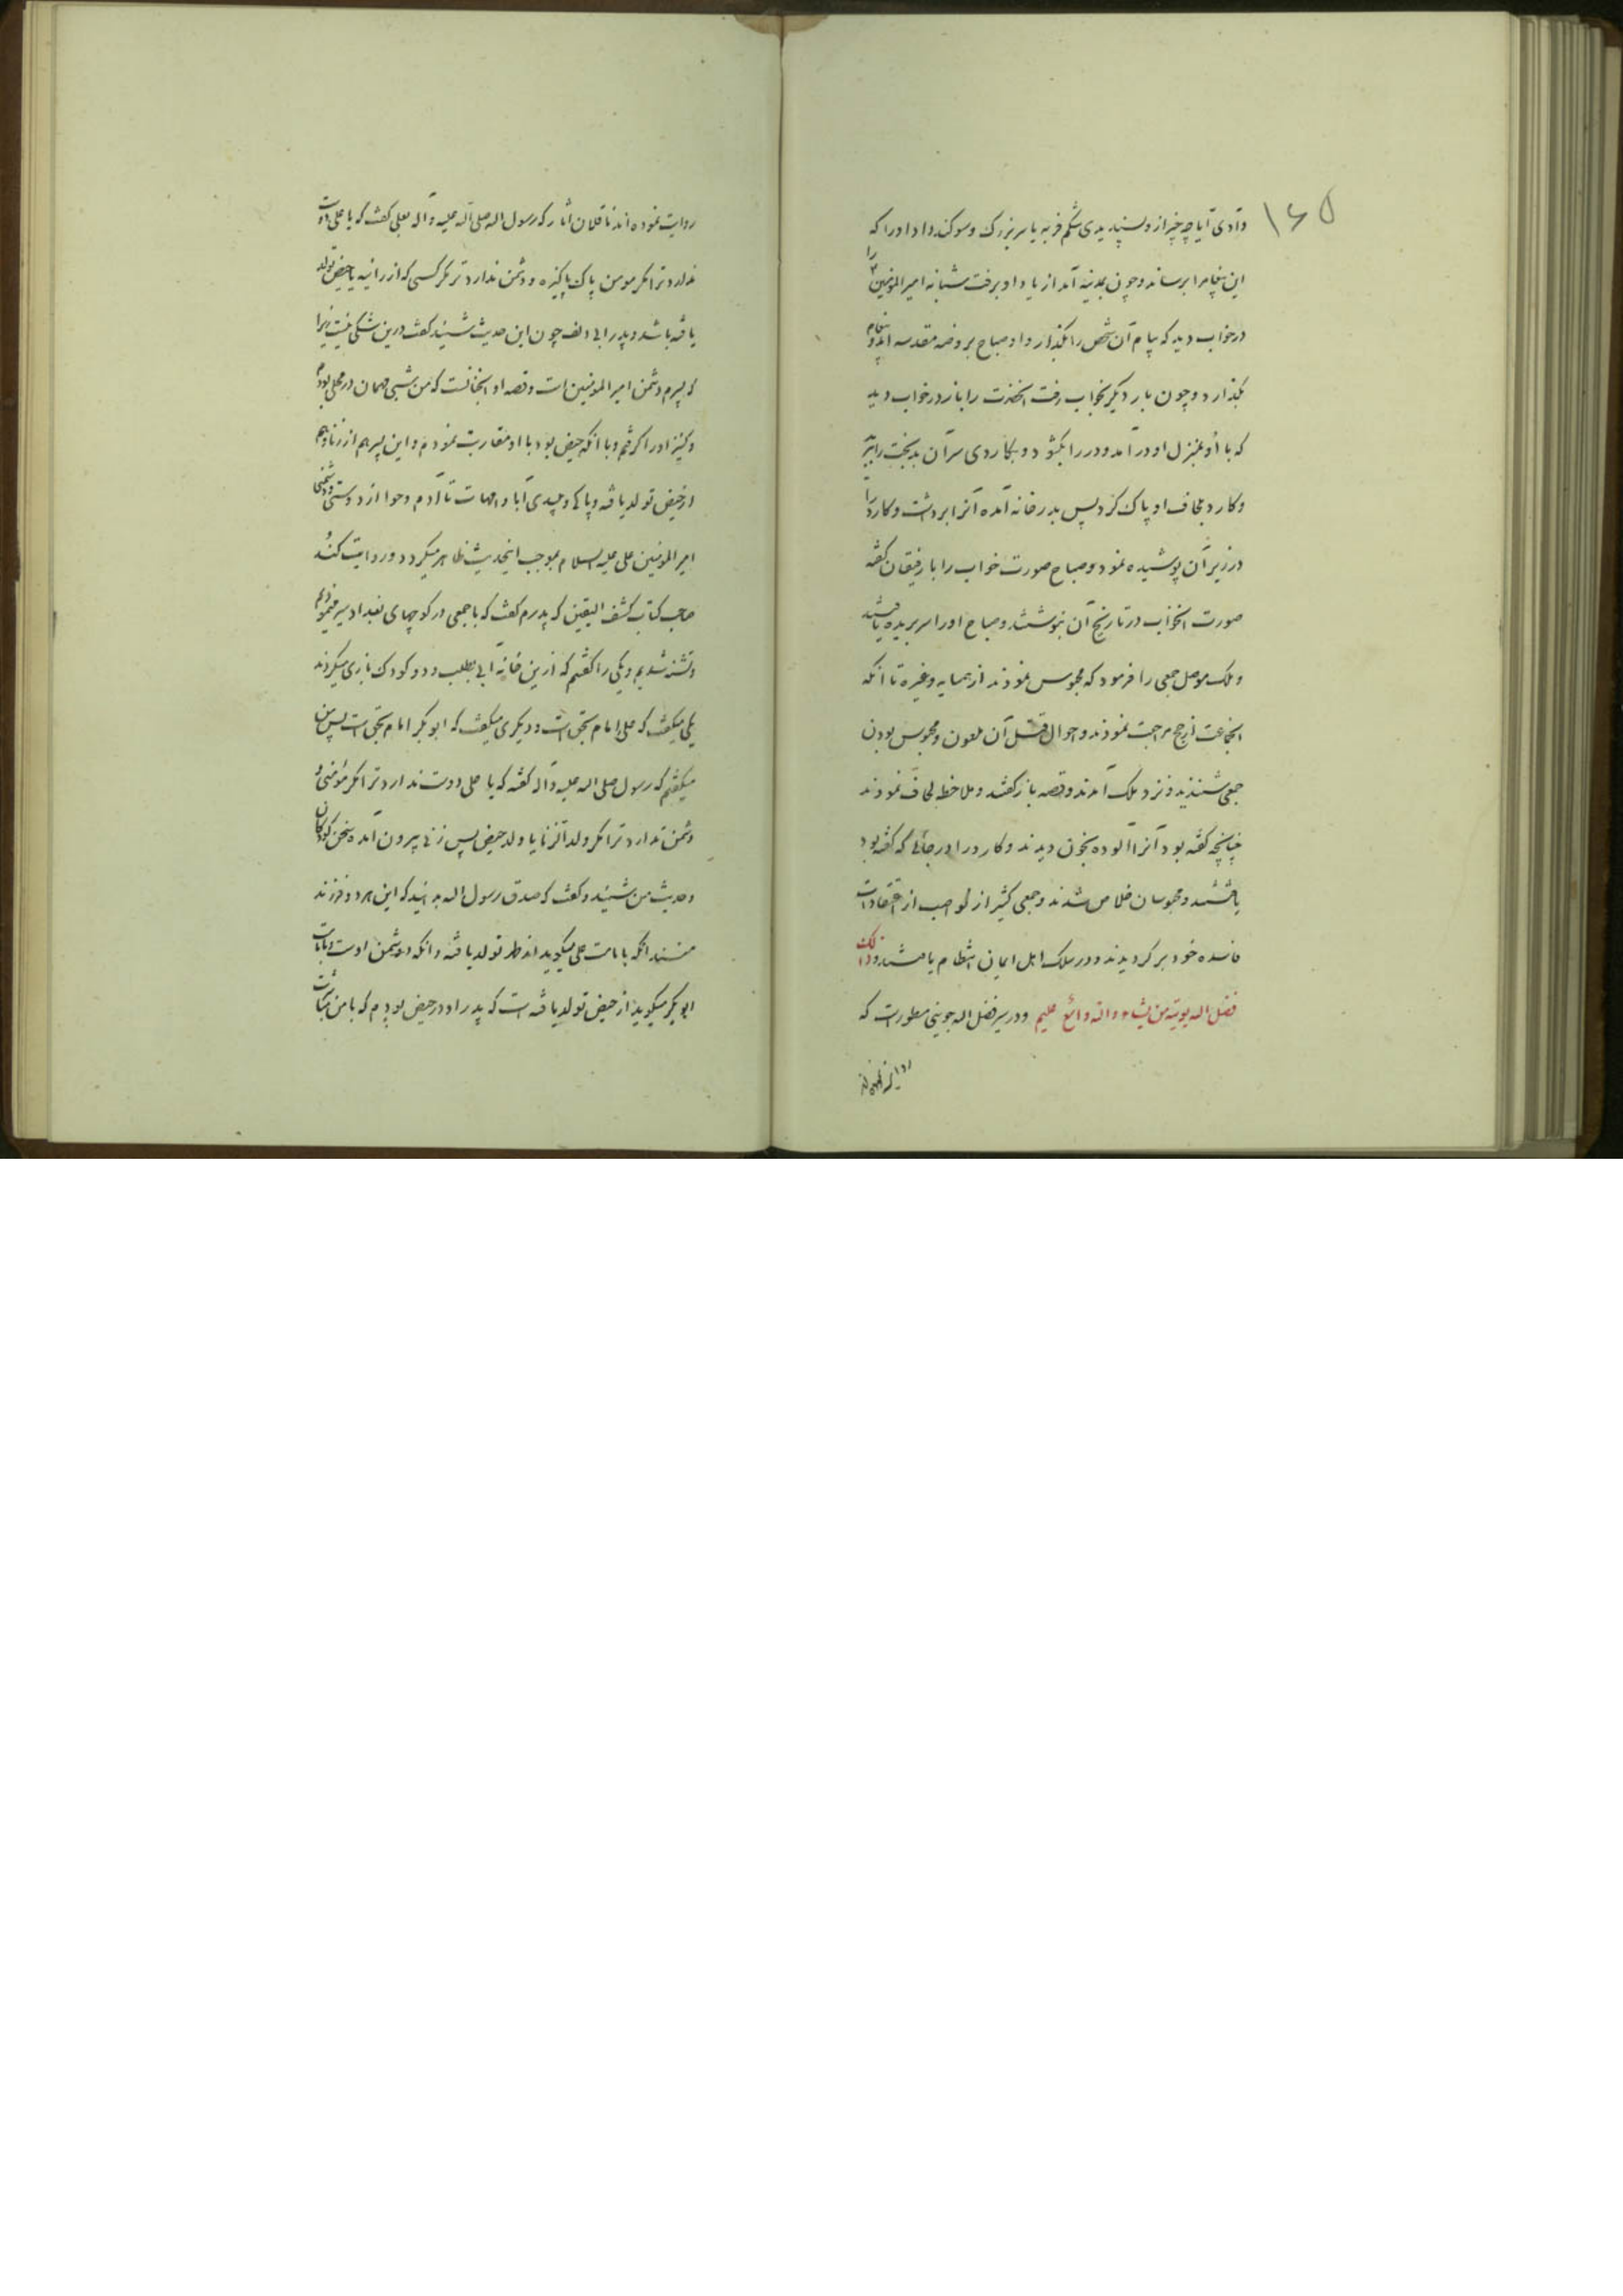 ۱۶۵
و آدی آیا چه چیز از و پسندیدی شکم فربه یا سر بزرک و سوکند داد او را که
این پیغامرا برساند و چون بمدینه آمد از یاد او برفت شبانه امیرالمؤمنین را
در خواب دید که پیام آن شخص را نکذارد او صباح بروضه مقدسه آمد و پیغام
بکذارد و چون بار دیکر بخواب رفت انحضرت را باز در خواب دید
که با او بمنزل او در آمد و در را بکشود و بکاردی سر آن بدبخت را ببرید
و کارد بلحاف او پاک کرد پس بدر خانه آمده آنرا برداشت و کارد را
در زیر آن پوشیده نمود و صباح صورت خواب را با رفیقان کفته
صورت انخواب در تاریخ آن بنوشتند و صباح او را سر بریده یافتند
و ملک موصل جمعی را فرمود که محبوس نمودند از همسایه و غیره تا انکه
انجماعت از حج مراجعت نمودند و احوال قتل آن ملعون و محبوس بودن
جمعی شنیدند و نزد ملک آمدند و قصه باز کفتند و ملاحظه لحاف نمودند
چنانچه کفته بود آنرا آلوده بخون دیدند و کارد را در جائی که کفته بود
یافتند و محبوسان خلاص شدند و جمعی کثیر از نواصب از اعتقادات
فاسده خود برکردیدند و در سلک اهل ایمان انتظام یافتند و ذلک
فضل اله یوتیه من یشاء و اله واسع علیم و در سیر فضل اله جوینی مسطورست که
روایت نموده اند
روایت نموده اند ناقلان آثار که رسول اله صلی اله علیه و آله بعلی کفت که یا علی دوست
ندارد ترا مکر مومن پاک پاکیزه و دشمن ندارد ترا مکر کسی که از زانیه یا حیض تولد
یافته باشد و پدر ابی دلف چون این حدیث شنید کفت درین شکی نیست زیرا
که پسرم دشمن امیرالمومنین است و قصه او انچنانست که من شبی مهمان در محلی بودم
و کنیز او را کرفتم و با انکه حیض بود با او مقاربت نمودم و این پسر هم از زنا و هم
از حیض تولد یافته و پاکی و پلیدی آبا و امهات تا آدم و حوا از دوستی و دشمنی
امیرالمومنین علی علیه السلام بموجب اینحدیث ظاهر میکردد و روایت کند
صاحب کتاب کشف الیقین که پدرم کفت که با جمعی در کوچهای بغداد سیر مینمودیم
و تشنه شدیم و یکی را کفتیم که ازین خانه آبی بطلب و دو کودک بازی میکردند
یکی میکفت که علی امام بحق است و دیکری میکفت که ابوبکر امام بحق است پس من
میکفتم که رسول صلی اله علیه و آله کفته که یا علی دوست ندارد ترا مکر مؤمنی و
دشمن ندارد ترا مکر ولد الزنا یا ولد حیض پس زنی بیرون آمده سخن کودکان
و حدیث من شنید و کفت که صدق رسول اله بدانید که این هر دو فرزند
منند انکه بامامت علی میکوید اندر طهر تولد یافته و انکه دشمن اوست و بامامت
ابوبکر میکوید از حیض تولد یافته است که پدر او در حیض بودم که با من مباشرت